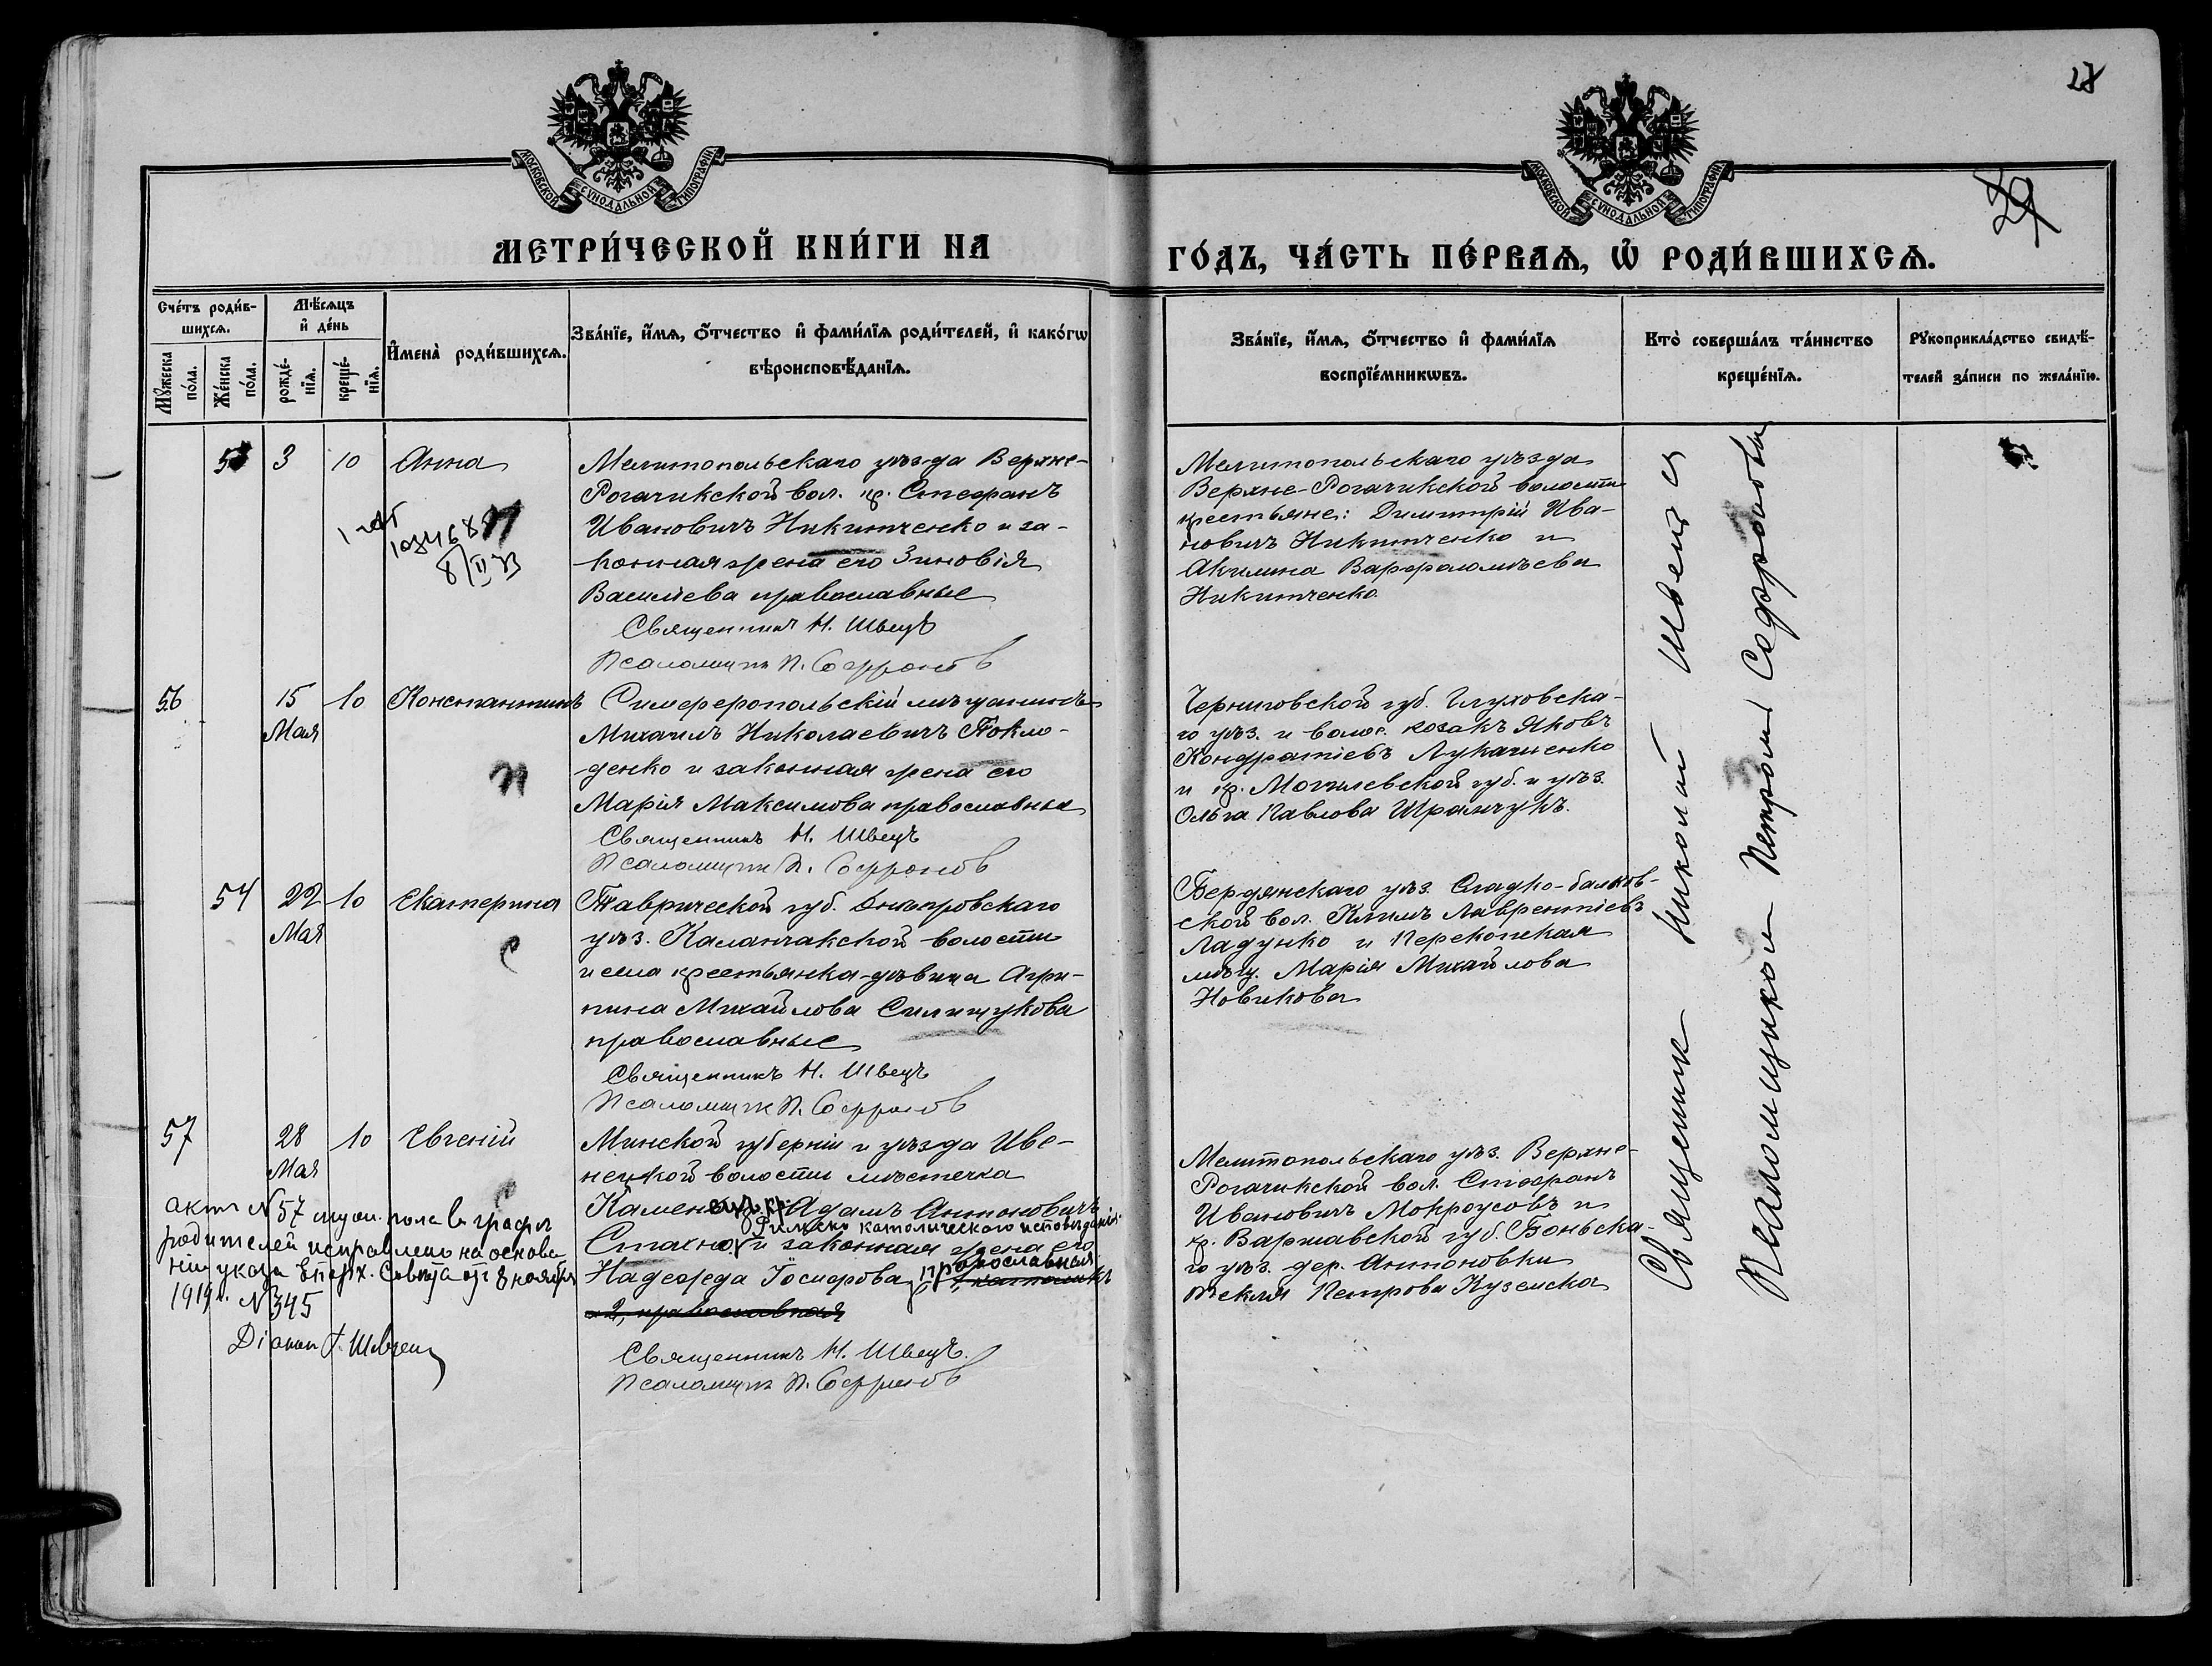 28
МОСКОВСКОЙ СѴНОДАЛЬНОЙ ТИПОГРАФІИ
МОСКОВСКОЙ СѴНОДАЛЬНОЙ ТИПОГРАФІИ
29
МЕТРИ́ЧЕСКОЙ КНИ́ГИ НА
ГО́ДЪ, ЧА́СТЬ ПЕ́РВАѦ, Ѡ҆ РОДИ́ВШИХСѦ.
Сче́тъ роди́в-
шихсѧ.
Мѣ́сѧцъ
и҆ де́нь
Мꙋ́жеска
по́ла.
Же́нска
по́ла.
рожде́-
нїѧ.
креще́-
нїѧ.
И҆мена̀ роди́вшихсѧ.
Зва́нїе, и҆́мѧ, ѻ҆́тчество и҆ фами́лїѧ роди́телей, и҆ како́гѡ
вѣроисповѣ́данїѧ.
Зва́нїе, и҆́мѧ, ѻ҆́тчество и҆ фами́лїѧ
воспрїе́мникѡвъ.
Кто̀ соверша́лъ та́инство
креще́нїѧ.
Рꙋкоприкла́дство свидѣ́-
телей за́писи по жела́нїю.
53 3 10 Анна
Мелитопольскаго уѣзда Верхне-
Рогачикской вол. кр. Стефанъ
Ивановичъ Никитченко и за-
конная жена его Зиновія
Васильева православные
Священникъ Н. Швецъ
Псаломщик П. Софронов
Мелитопольскаго уѣзда
Верхне-Рогачикской волости
крестьяне: Димитрій Ива-
новичъ Никитченко и
Акилина Варфоломѣева
Никитченко.
8/II 73
56 15 10 Константинъ
Мая
Симферопольскій мѣщанинъ
Михаилъ Николаевичъ Покло-
денко и законная жена его
Марія Максимова православные
Священникъ Н. Швецъ
Псаломщик П. Софронов
Черниговской губ. Глуховска-
го уѣз. и волос. козакъ Яковъ
Кондратіевъ Лукашенко
и кр. Могилевской губ. и уѣз.
Ольга Павлова Шрамчукъ.
54 22 10 Екатерина
Мая
Таврической губ. Днѣпровскаго
уѣз. Каланчакской волости
и села крестьянка-дѣвица Агри-
пина Михайлова Силищукова
православные
Священникъ Н. Швецъ
Псаломщик П. Софронов
Бердянскаго уѣз. Сладко-балков-
ской вол. Климъ Лаврентіевъ
Ладунко и Перекопская
мѣщ. Марія Михайлова
Новикова
57 28 10 Евгеній
Мая
Минской губерніи и уѣзда Иве-
нецкой волости мѣстечка
Каменецъ кр. Адамъ Антоновичъ
Римско католическаго исповѣданія
Стахно и законная жена его
Надежда Іосифова православная католикъ
а 2, православная
Священникъ Н. Швецъ.
Псаломщик П. Софронов
Мелитопольскаго уѣз. Верхне-
Рогачикской вол. Стефанъ
Ивановичъ Мокроусовъ и
кр. Варшавской губ. Боньска-
го уѣз. дер. Антоновки
Текля Петрова Куземска
акт №57 муж. пола в графѣ
родителей исправленъ на основа
ніи указа Епарх. Совѣта от 8 ноября
1919 г. №345
Діакон Г. Шевчен
Священник Николай Швецъ
Псаломщикъ Петром Софронов